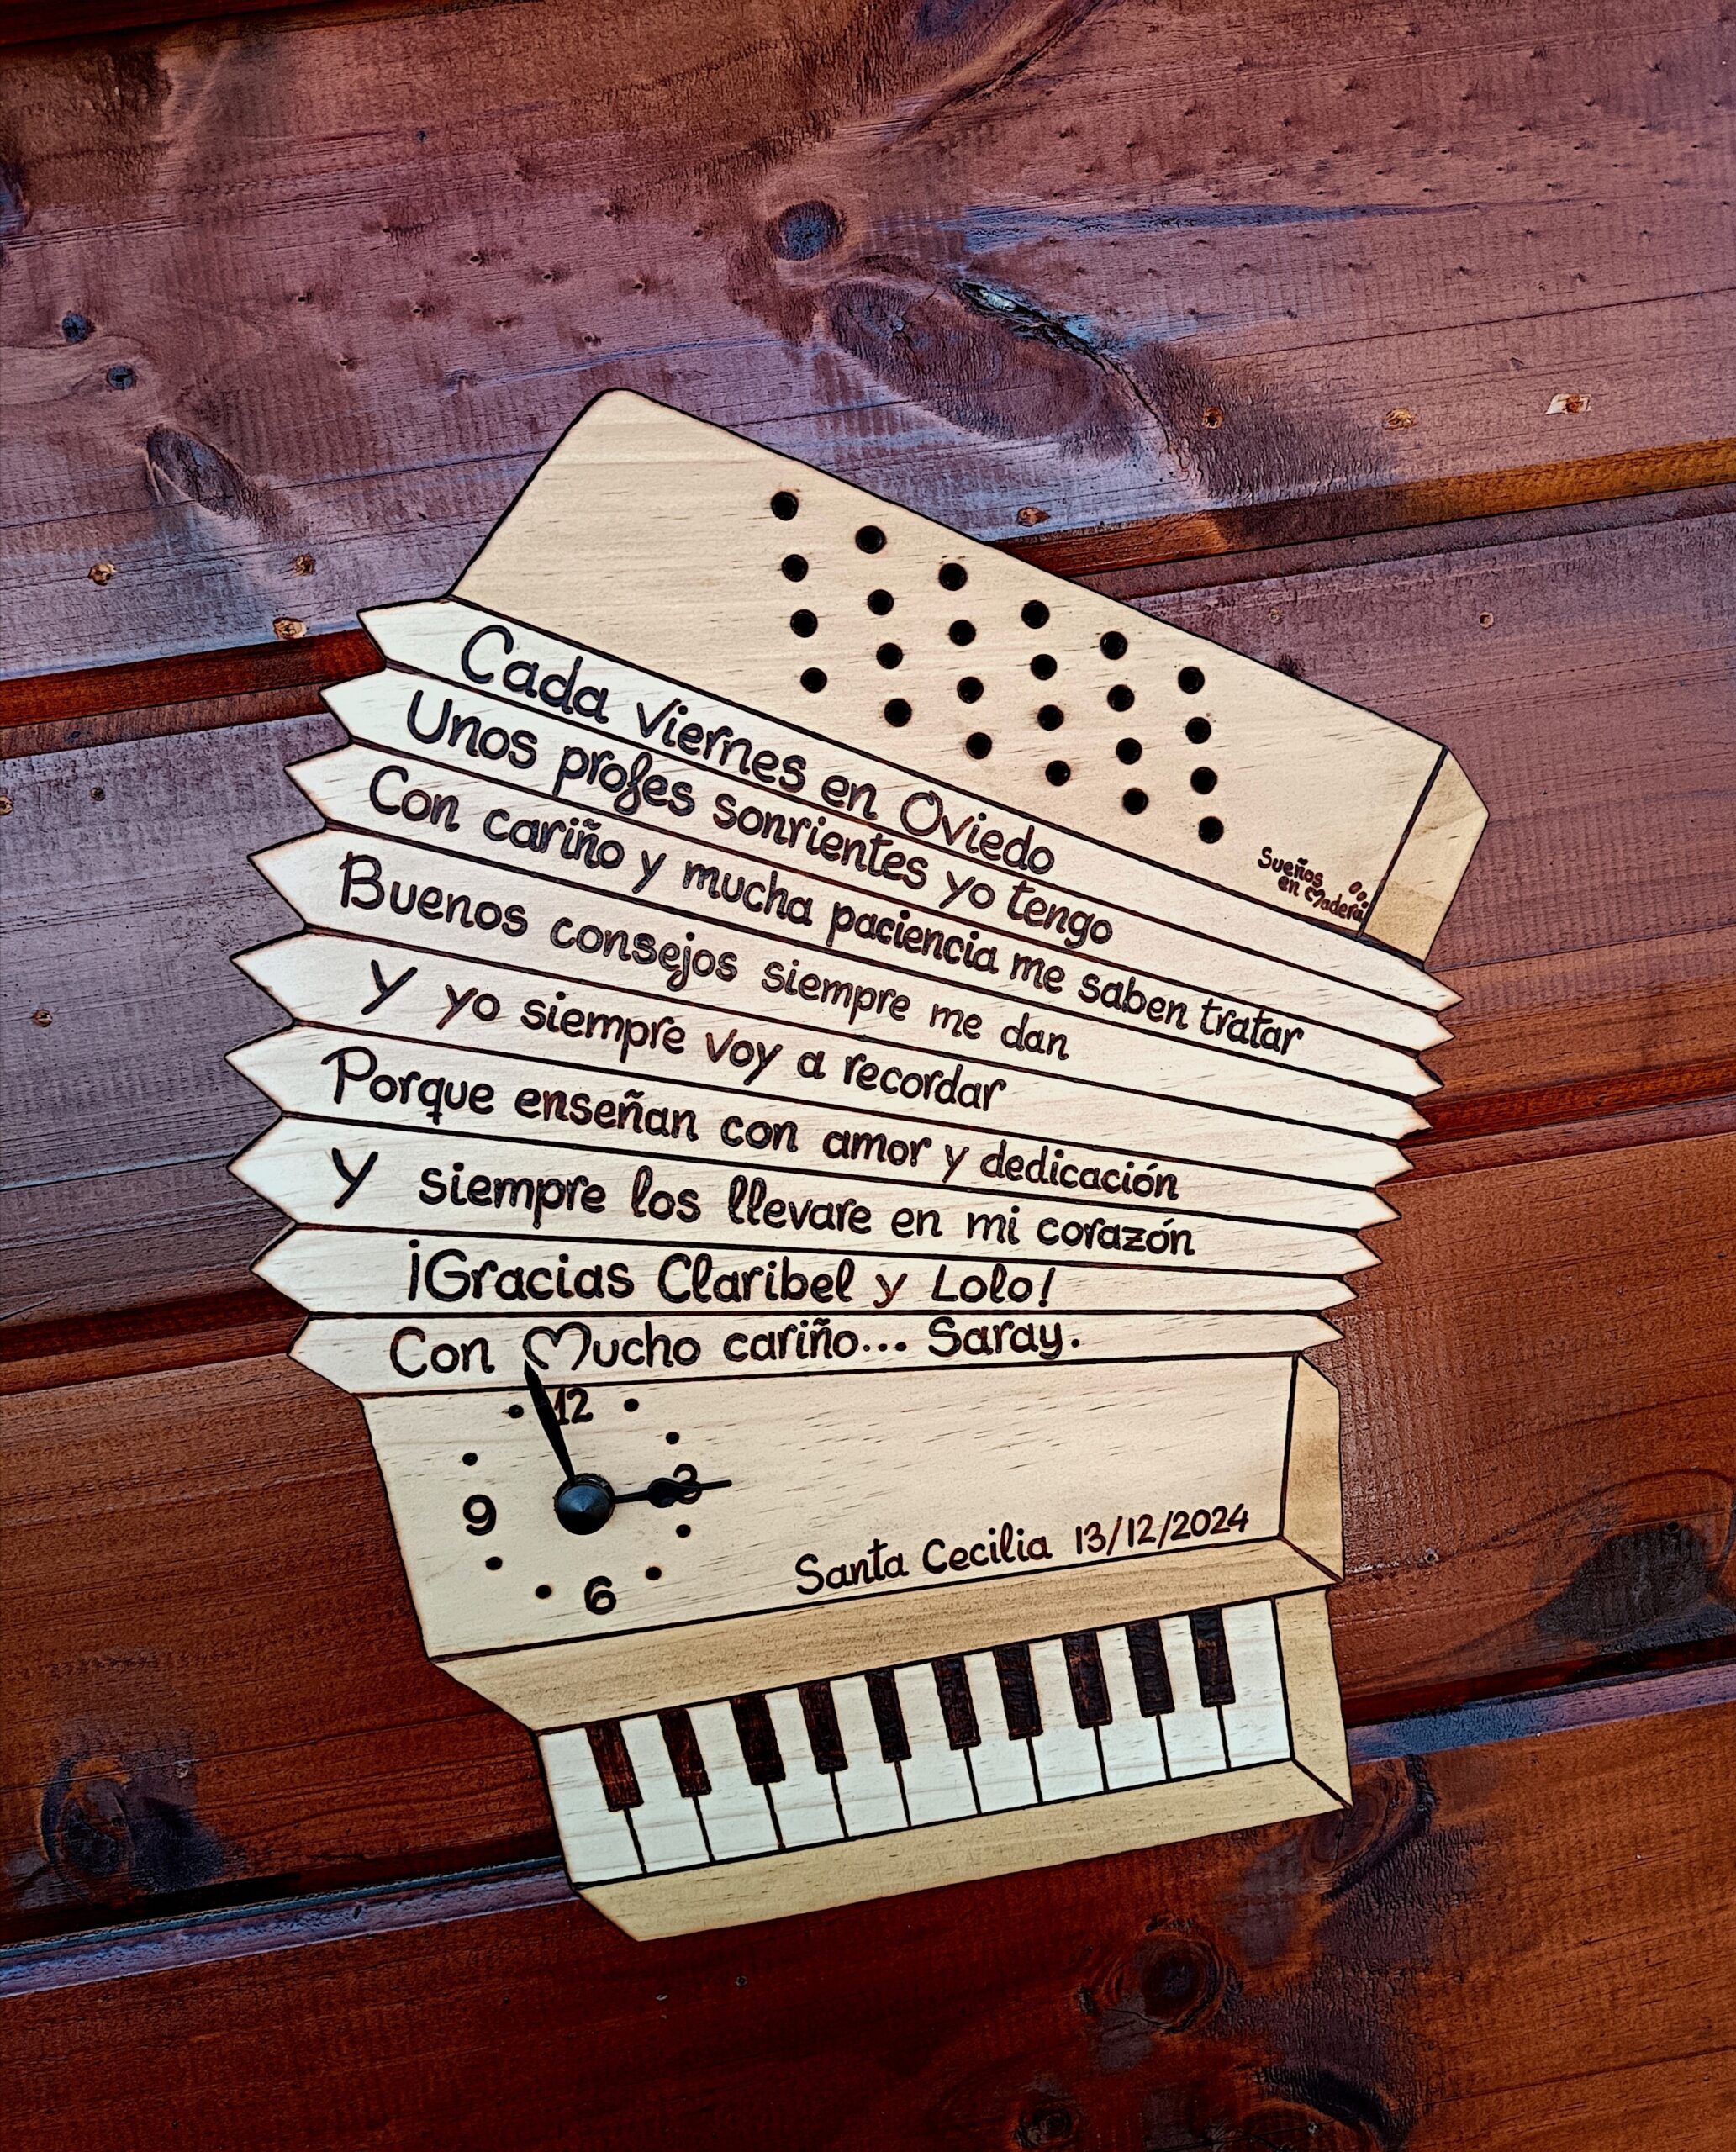 Cada viernes en Oviedo
Unos profes sonrientes yo tengo
Con cariño y mucha paciencia me saben tratar
Buenos consejos siempre me dan
Y yo siempre voy a recordar
Porque enseñan con amor y dedicación
Y siempre los llevare en mi corazón
¡Gracias Claribel y Lolo!
Con Mucho cariño... Saray.
Sueños
en Madera
12
3
9
6
Santa Cecilia 13/12/2024